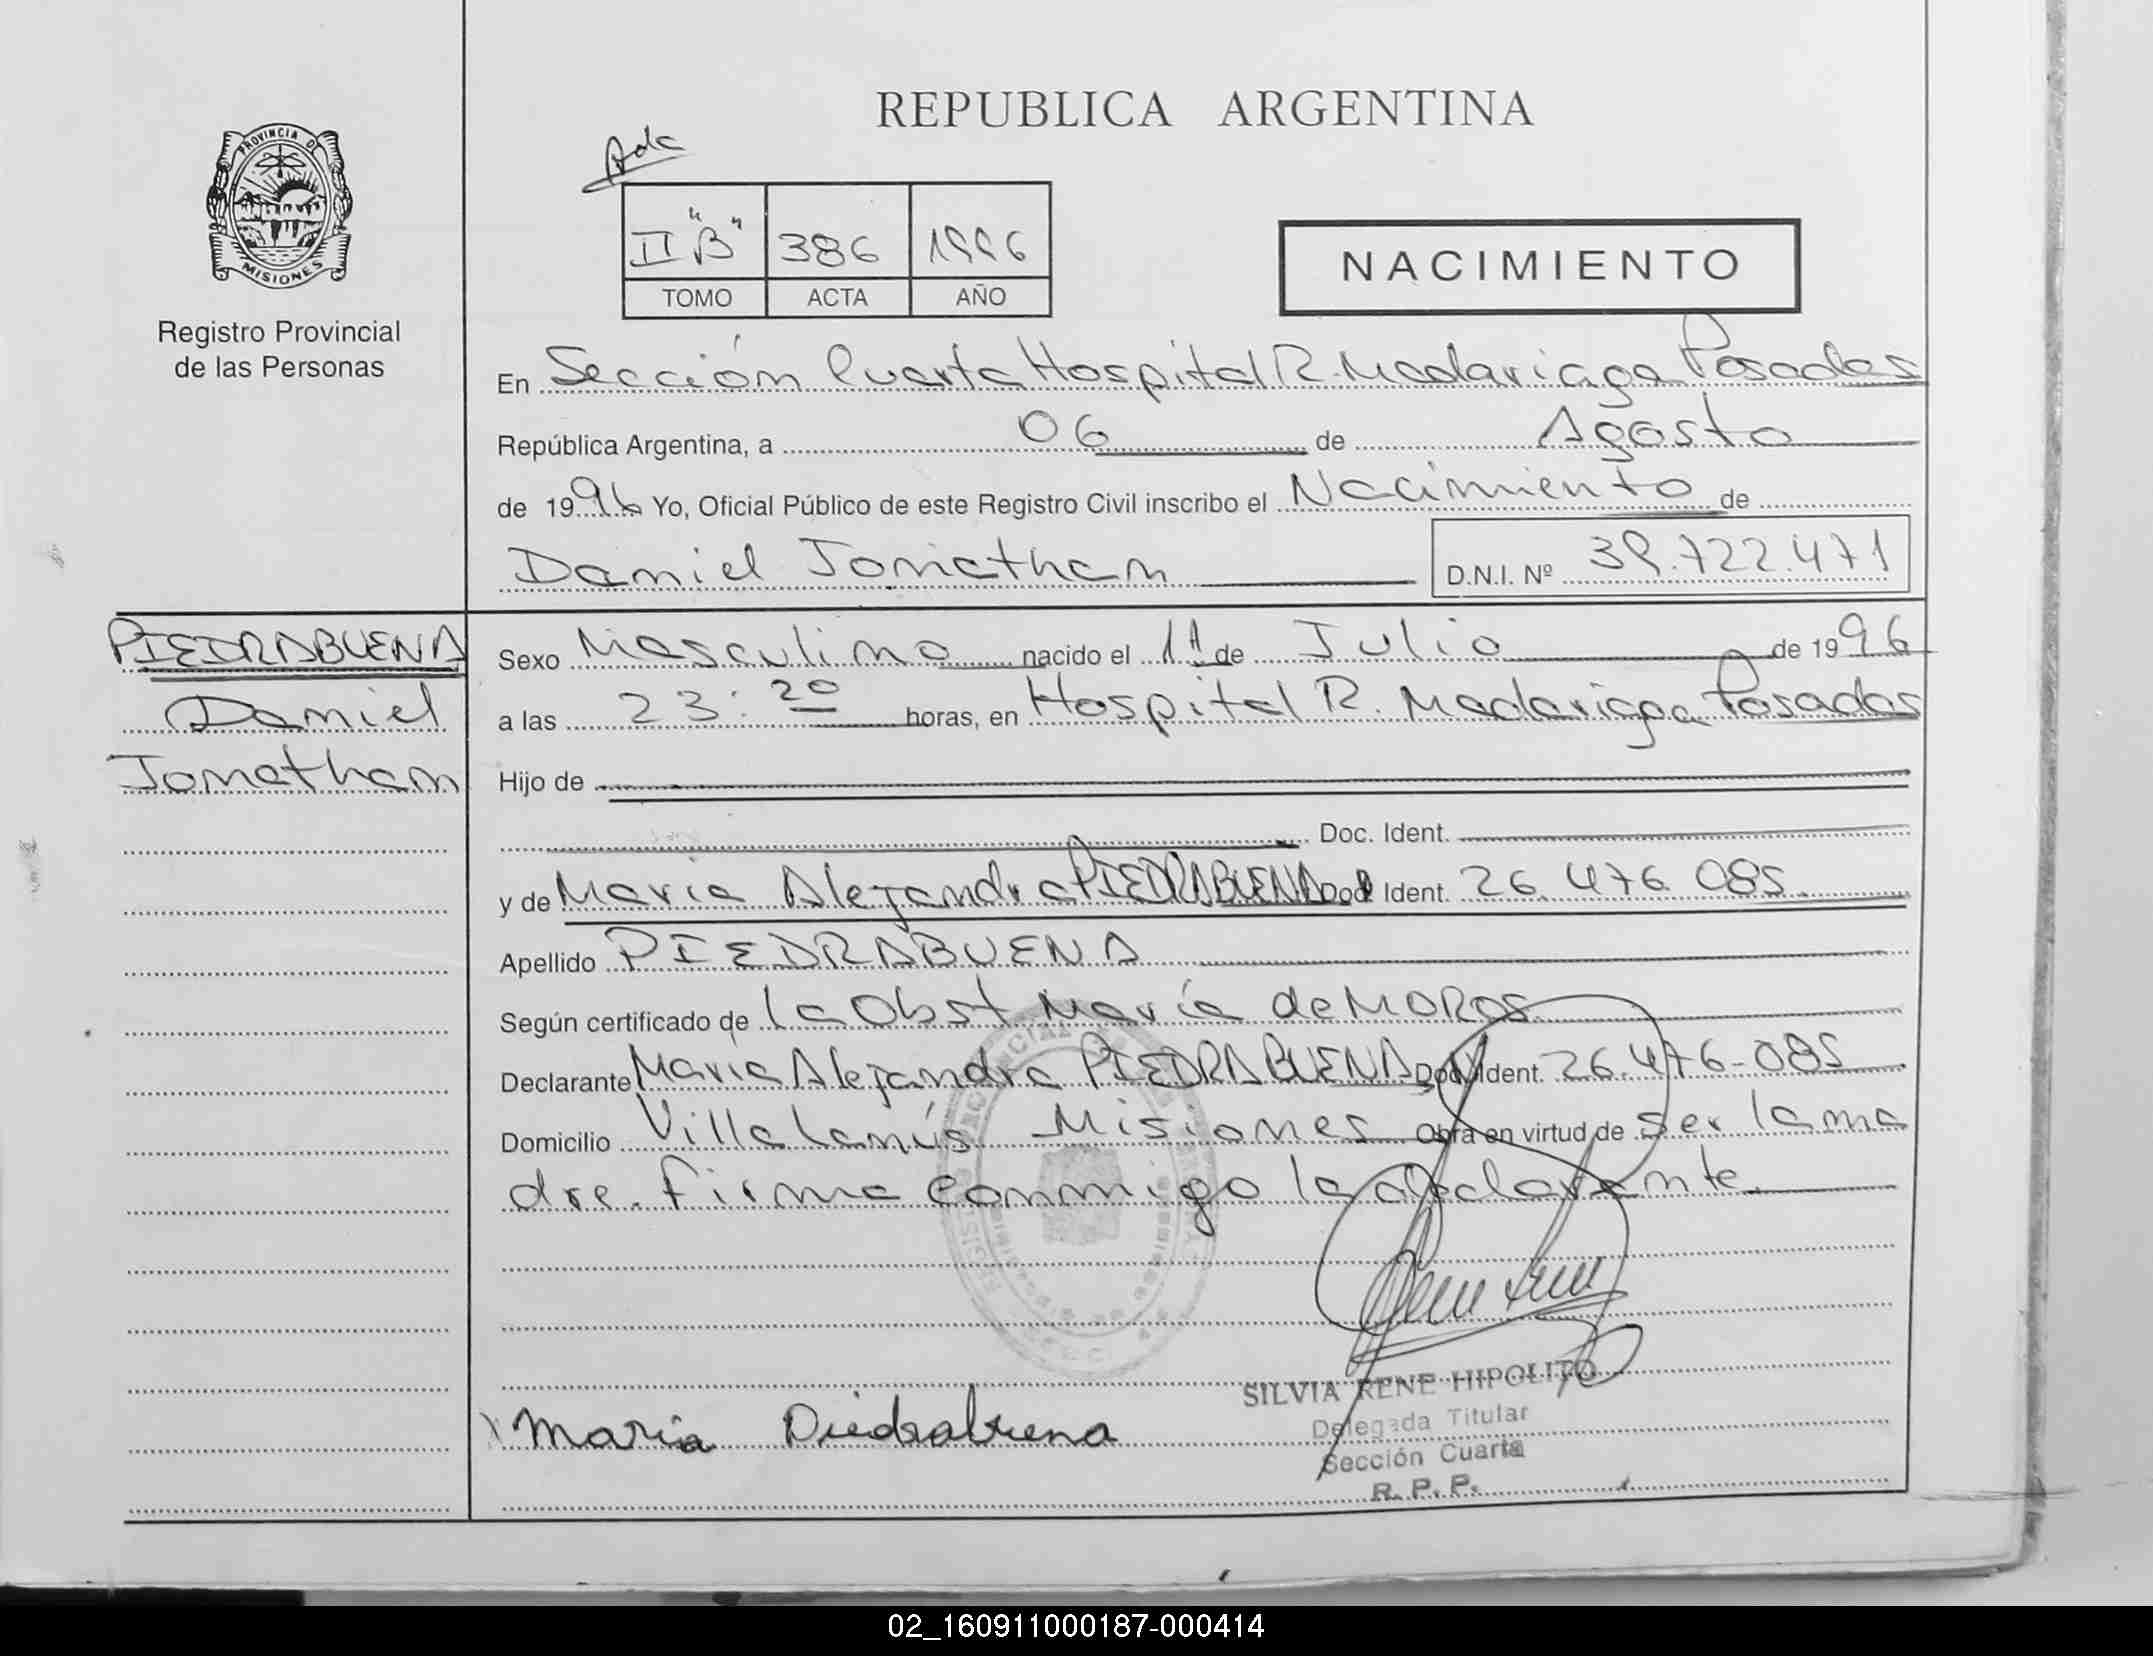 REPUBLICA ARGENTINA
PROVINCIA DE
MISIONES
Registro Provincial
de las Personas
II "B" 386 1996
TOMO ACTA AÑO
NACIMIENTO
En Sección Cuarta Hospital R. Madariaga Posadas
República Argentina, a 06 de Agosto
de 1996 Yo, Oficial Público de este Registro Civil inscribo el Nacimiento de
Daniel Jonathan D.N.I. Nº 39.722.471
PIEDRABUENA
Daniel
Jonathan
Sexo Masculino nacido el de Julio de 1996
a las 23:20 horas, en Hospital R. Madariaga Posadas
Hijo de
Doc. Ident.
y de Maria Alejandra PIEDRABUENA Doc. Ident. 26.476.085
Apellido PIEDRABUENA
Según certificado de la Obst María de MOROS
Declarante Maria Alejandra PIEDRABUENA Doc. Ident. 26.476-085
Domicilio Villa Lanús Misiones Obra en virtud de ser la ma
dre. Firma conmigo la declarante.
SILVIA RENE HIPOLITO
Delegada Titular
Sección Cuarta
R. P. P.
Maria Piedrabuena
02_160911000187-000414